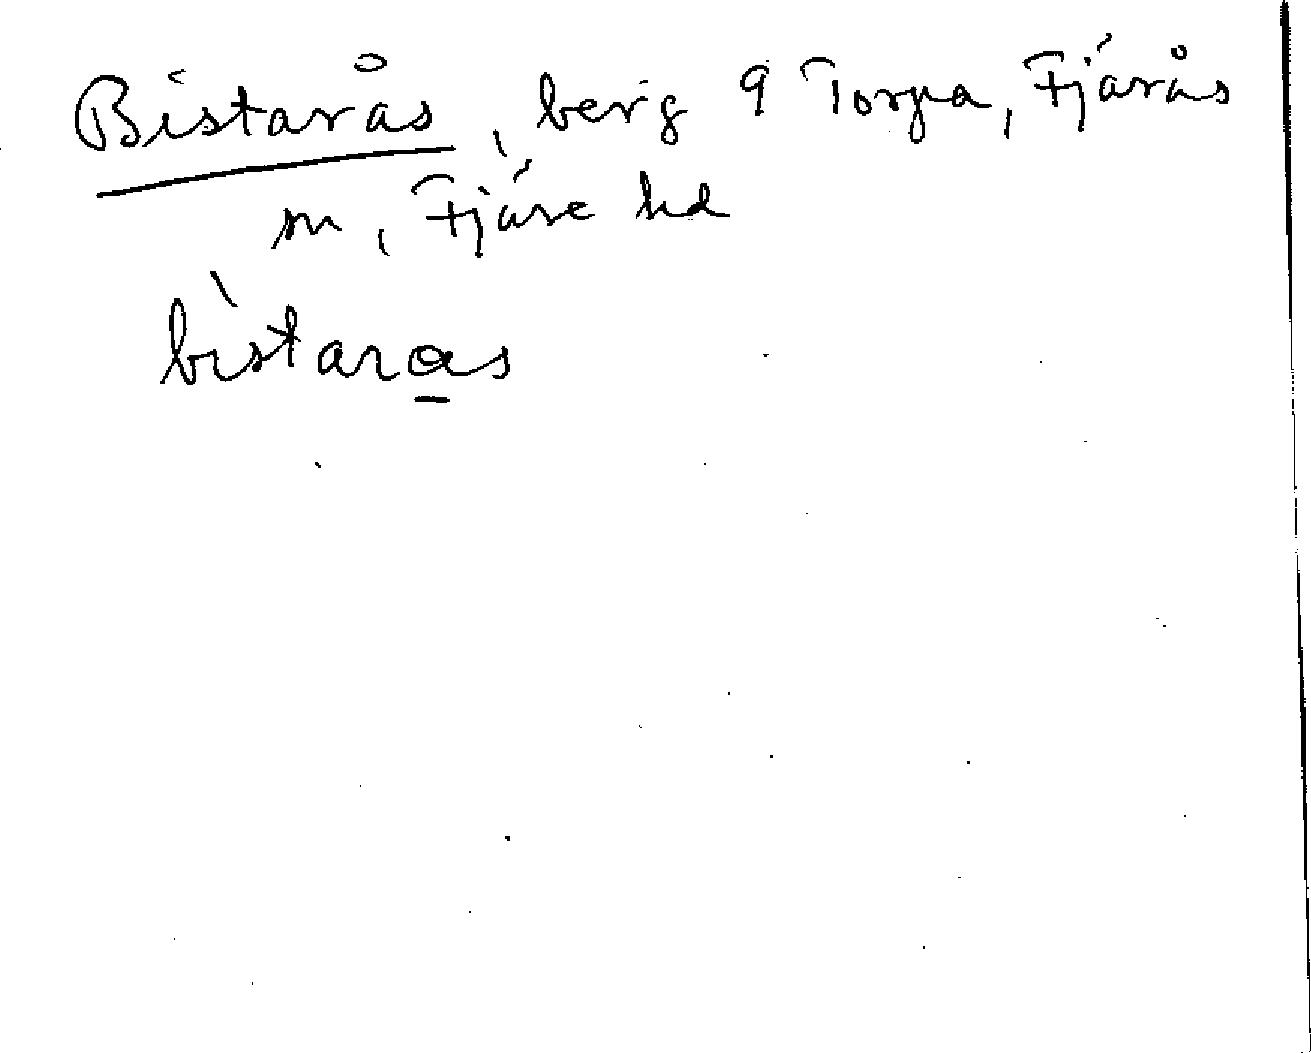 Bistarås, berg 9 Torpa, Fjärås
sn, Fjäre hd
bìstaras